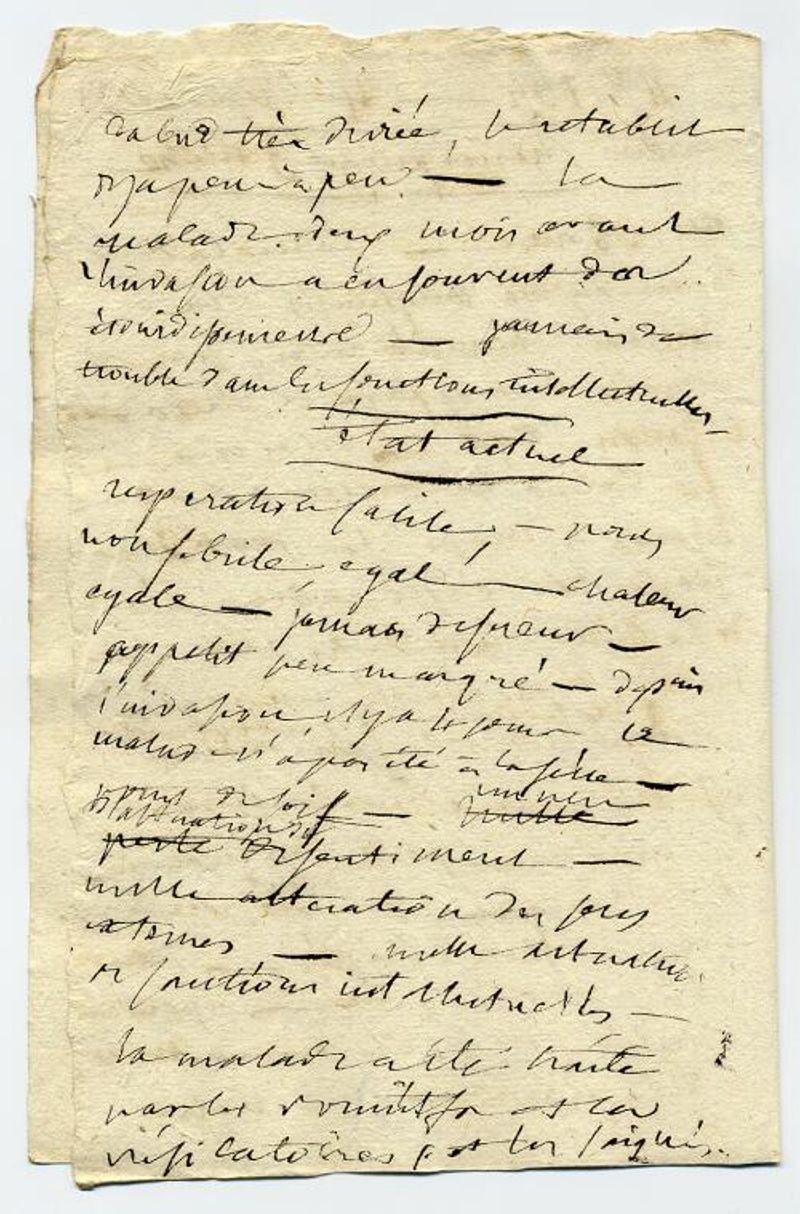 d'abord très deviée, se retablit
deja peu à peu — la
malade deux mois avant
l'invasion a eu souvent des
étourdissements — jamais de
trouble dans les fonctions intellectuelles —
état actuel
respiration facile, — pouls
non febrile, egal, chaleur
egale — jamais de sueur —
appetit peu marqué — depuis
l'invasion il y a jours la
malade n'a pas été à la selle —
point de soif — un peu nulle
d'altération de
perte de sentiment —
nulle alteration des sens
externes — nulle
de fonctions intellectuelles —
la malade a été traitée
par les vomitifs et les
vésicatoires et les saignées.